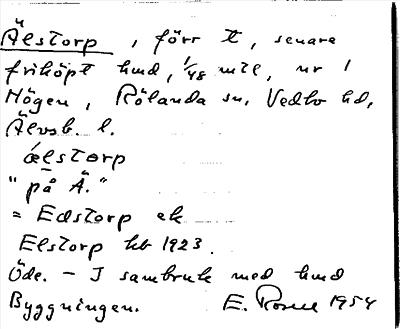 Älstorp, förr t, senare
friköpt hmd, 1/48 mtl, nr 1
Högen, Rölanda sn, Vedbo hd,
Älvsb. l.
ælstorp
"på Ä."
= Edstorp ek
Elstorp hb 1923.
Öde. – I sambruk med hmd
Byggningen. E. Rosell 1954